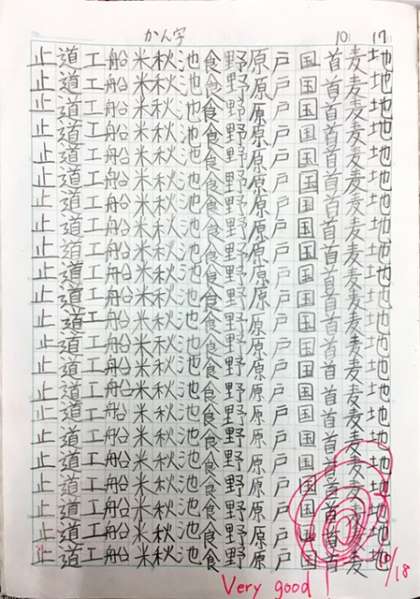 かん字 10 17
地地地地地地地地地地地地地地地地地地地地地地
麦麦麦麦麦麦麦麦麦麦麦麦麦麦麦麦麦麦麦麦麦麦
首首首首首首首首首首首首首首首首首首首首首首
国国国国国国国国国国国国国国国国国国国国国国
戸戸戸戸戸戸戸戸戸戸戸戸戸戸戸戸戸戸戸戸戸戸
原原原原原原原原原原原原原原原原原原原原原原
野野野野野野野野野野野野野野野野野野野野野野
食食食食食食食食食食食食食食食食食食食食食食
池池池池池池池池池池池池池池池池池池池池池池
秋秋秋秋秋秋秋秋秋秋秋秋秋秋秋秋秋秋秋秋秋秋
米米米米米米米米米米米米米米米米米米米米米米
船船船船船船船船船船船船船船船船船船船船船船
工工工工工工工工工工工工工工工工工工工工工工
道道道道道道道道道道道道道道道道道道道道道道
止止止止止止止止止止止止止止止止止止止止止止
Very good! 10/18